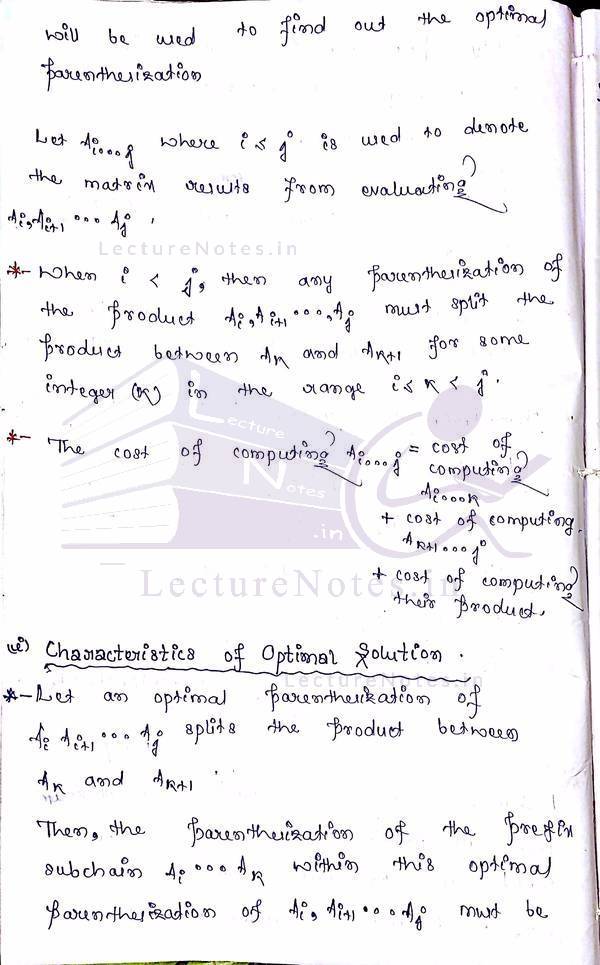 will be used to find out the optimal
parenthesization
Let Ai...j where i ≤ j is used to denote
the matrix results from evaluating
Ai, Ai+1 ... Aj .
LectureNotes.in
*- When i < j, then any parenthesization of
the product Ai, Ai+1 ..., Aj must split the
product between AK and AK+1 for some
integer (K) in the range i ≤ K < j.
*- The cost of computing Ai...j = cost of
computing
Ai...K
+ cost of computing
AK+1...j
+ cost of computing
their product.
Lecture
Notes
.in
LectureNotes.in
ii) Characteristics of Optimal Solution .
LectureNotes.in
*- Let an optimal parenthesization of
Ai Ai+1 ... Aj splits the product between
AK and AK+1 .
Then, the parenthesization of the prefix
subchain Ai ... AK within this optimal
parenthesization of Ai, Ai+1 ... Aj must be